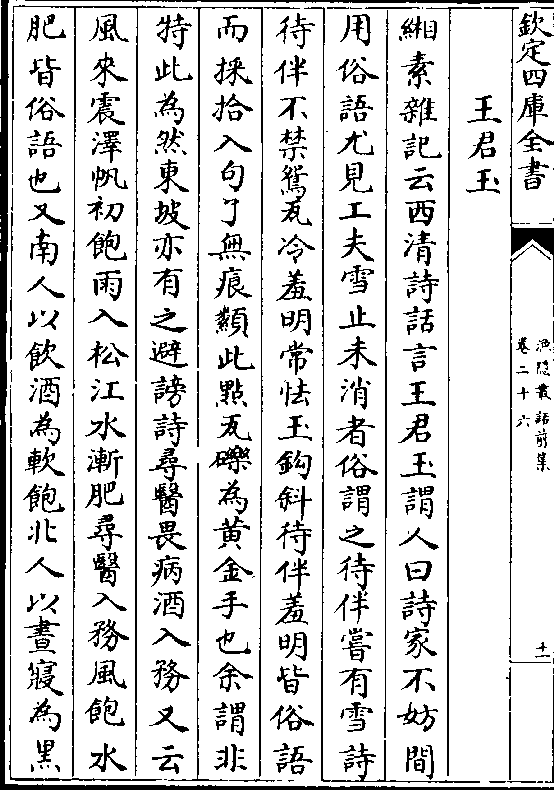 欽定四庫全書
漁隠叢話前集
卷二十六
十一
王君玉
緗素雜記云西清詩話言王君玉謂人曰詩家不妨間
用俗語尤見工夫雪止未消者俗謂之待伴嘗有雪詩
待伴不禁鴛瓦冷羞明常怯玉鈎斜待伴羞明皆俗語
而採拾入句了無痕纇此點瓦礫為黄金手也余謂非
特此為然東坡亦有之避謗詩尋醫畏病酒入務又云
風來震澤帆初飽雨入松江水漸肥尋醫入務風飽水
肥皆俗語也又南人以飲酒為軟飽北人以晝寢為黑